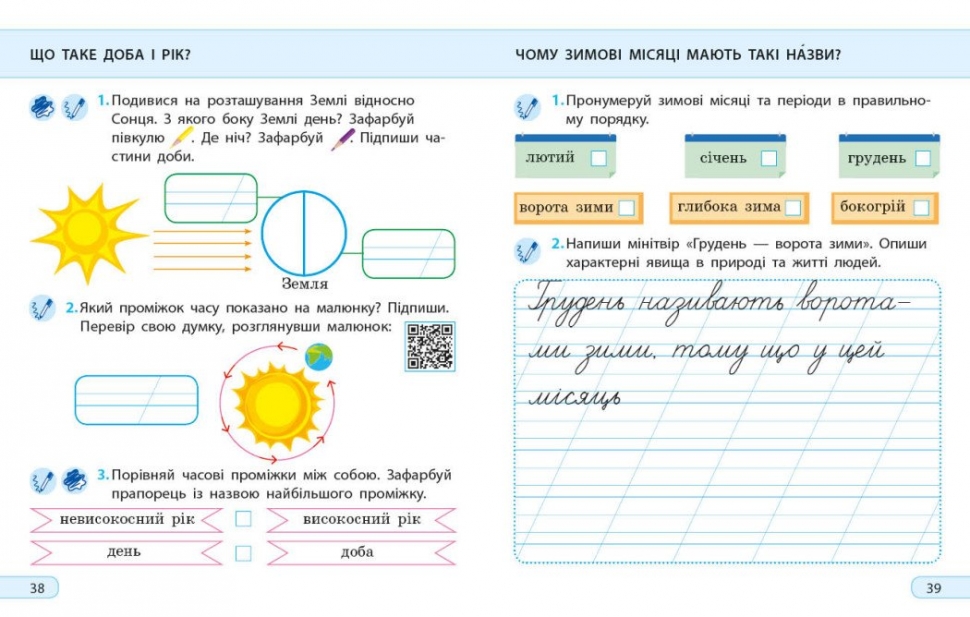 ЩО ТАКЕ ДОБА І РІК?
1. Подивися на розташування Землі відносно
Сонця. З якого боку Землі день? Зафарбуй
півкулю . Де ніч? Зафарбуй . Підпиши ча-
стини доби.
Земля
2. Який проміжок часу показано на малюнку? Підпиши.
Перевір свою думку, розглянувши малюнок:
3. Порівняй часові проміжки між собою. Зафарбуй
прапорець із назвою найбільшого проміжку.
невисокосний рік
високосний рік
день
доба
38
ЧОМУ ЗИМОВІ МІСЯЦІ МАЮТЬ ТАКІ НА́ЗВИ?
1. Пронумеруй зимові місяці та періоди в правильно-
му порядку.
лютий
січень
грудень
ворота зими
глибока зима
бокогрій
2. Напиши мінітвір «Грудень — ворота зими». Опиши
характерні явища в природі та житті людей.
Грудень називають ворота-
ми зими, тому що у цей
місяць
39